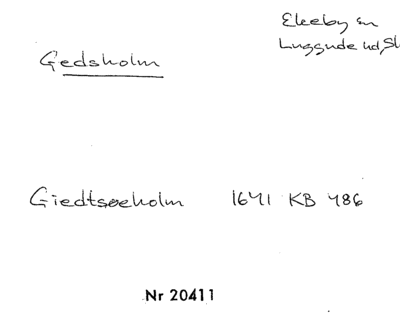 Ekeby sn
Gedsholm
Luggude hd, Sk
Giedtsøeholm 1641 KB 486
Nr 20411